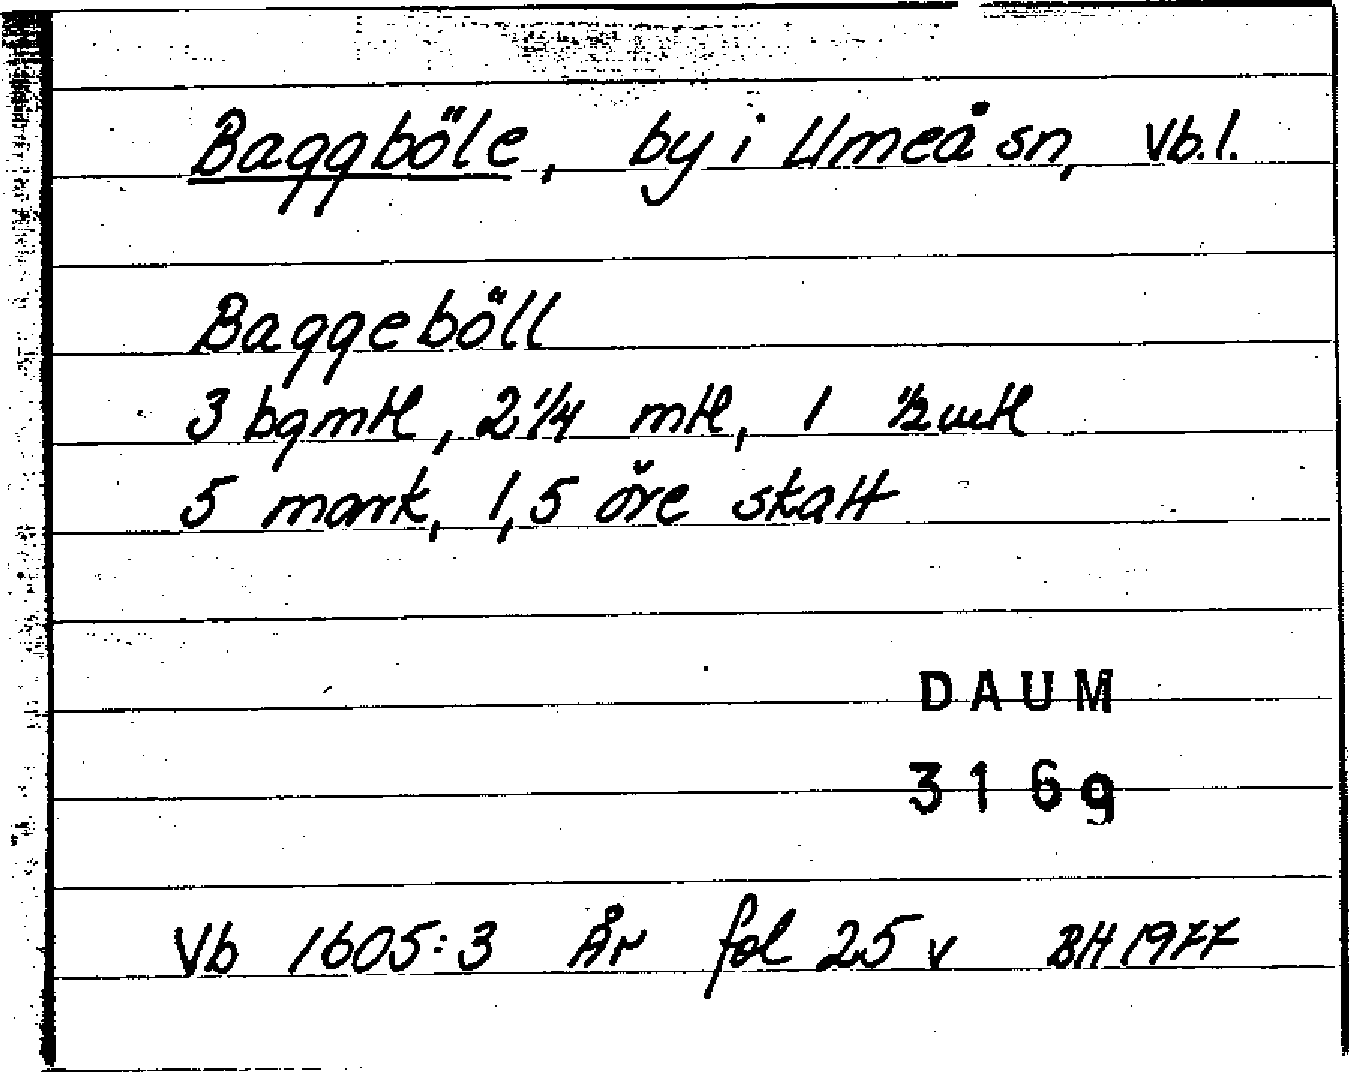 Baggböle, by i Umeå sn, Vb.l.
Baggeböll
3 bgmtl, 2 1/4 mtl, 1 1/2 mtl
5 mark, 1,5 öre skatt
DAUM
3169
Vb 1605:3 År fol 25 v BH 1977